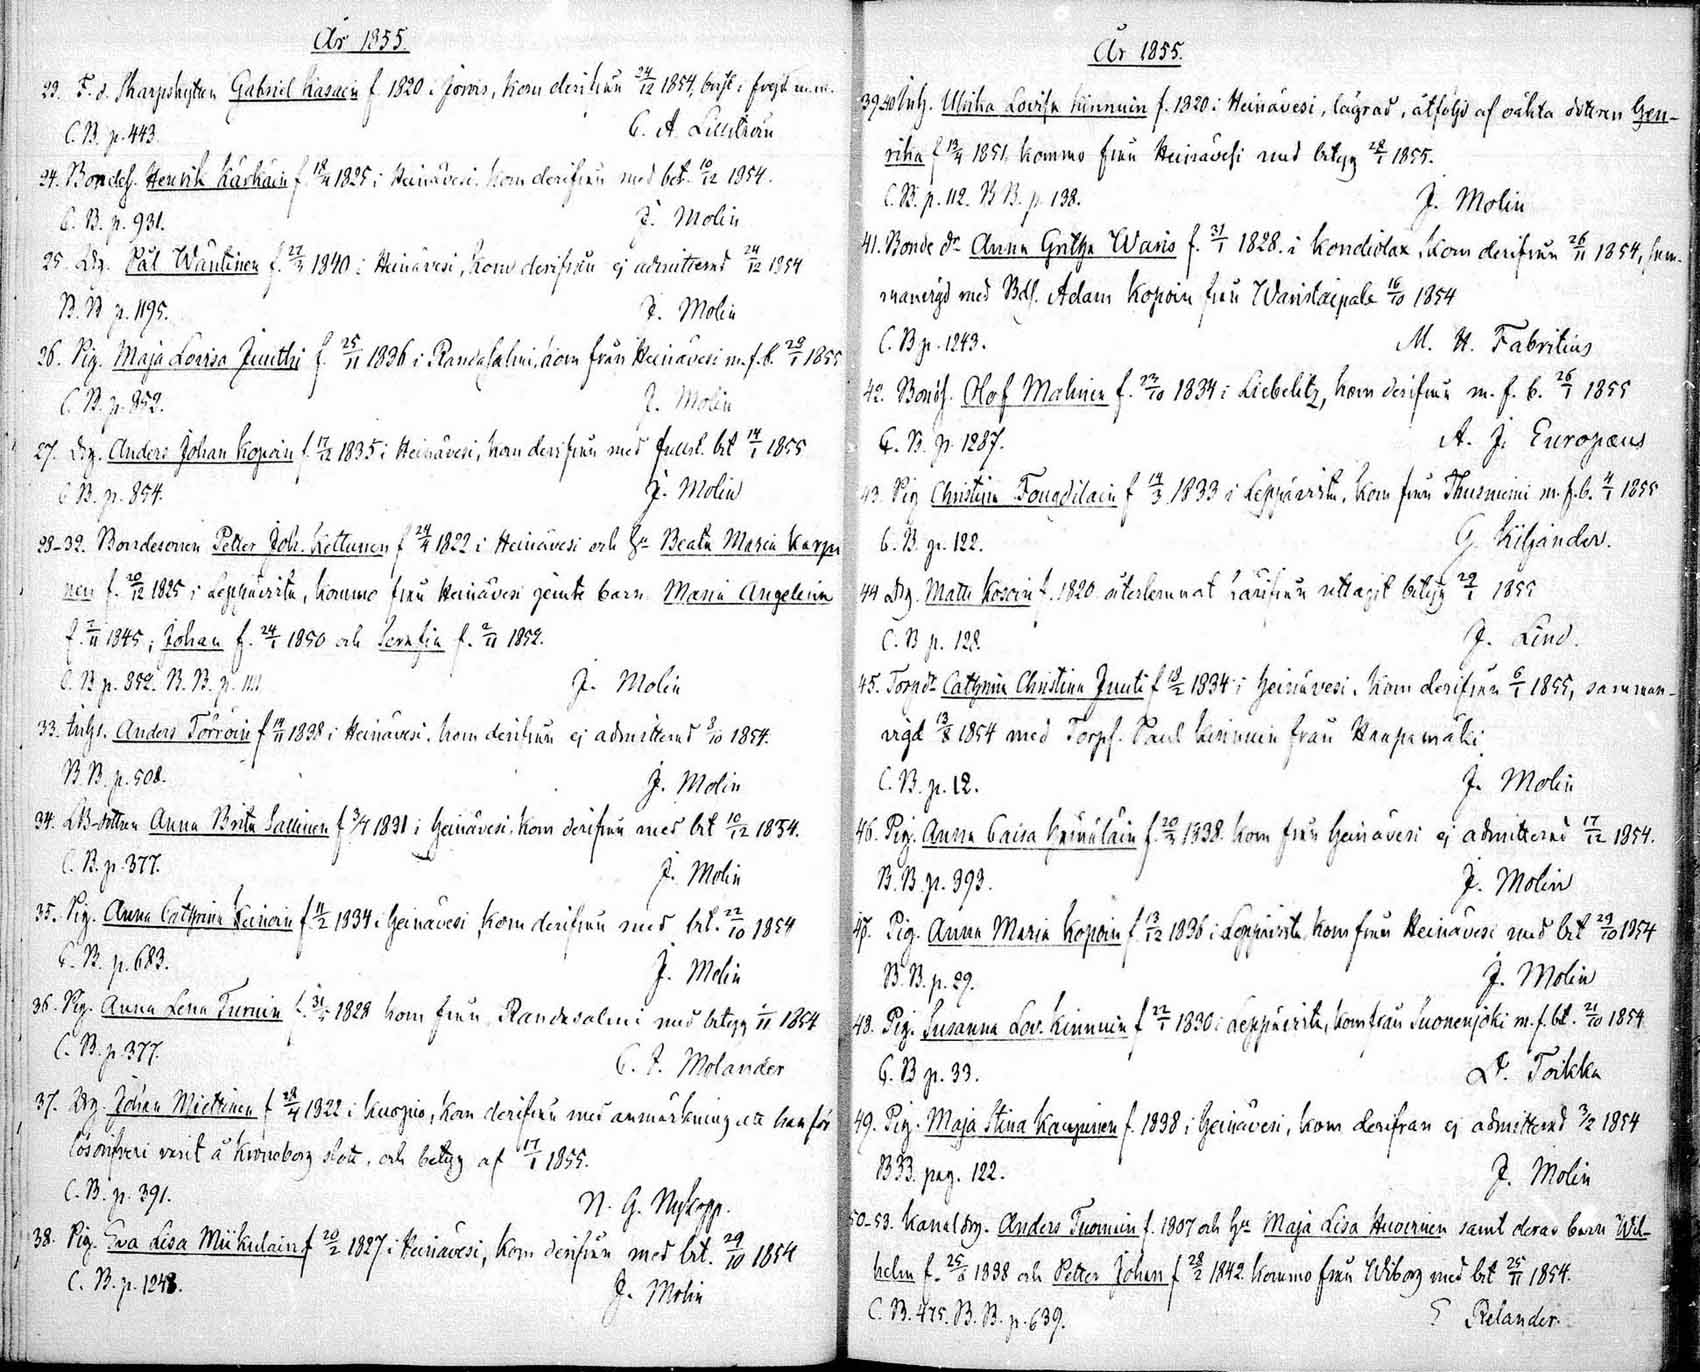 År 1855.
23. F. d. Skarpskytten Gabriel Kasain f. 1820 i Jorois, kom derifrån 24/12 1854, m. m.
C. B. p. 443.
C. A. Lillström
24. Bondes. Henrik Kärkäin f. 18/4 1825 i Heinävesi. kom derifrån med bet. 10/12 1854.
C. B. p. 931.
J. Molin
25. Drg. Pål Wäntinen f. 27/3 1840 i Heinävesi, kom derifrån ej admitterad 24/12 1854
B. B p. 1195.
J. Molin
26. Pig. Maja Lovisa Juutti f. 25/11 1836 i Randasalmi, kom från Heinävesi m. f. b. 28/1 1855
C. B. p. 852.
J. Molin
27. Drg. Anders Johan Kopoin f. 17/12 1835 i Heinävesi, kom derifrån med bet 14/1 1855
C B. p. 854.
J. Molin
28-32. Bondesonen Petter Joh. Kettunen f 24/4 1822 i Heinävesi och hu Beata Maria Karpi
nen f. 20/12 1825 i Leppävirta, kommo från Heinävesi jemte barn Maria Angelina
f. 2/11 1845, Johan f. 24/1 1850 och Serafia f. 2/11 1852.
C. B p. 852. B. B. p. 111
J. Molin
33. Inhs. Anders Törröin f 14/11 1838 i Heinävesi. kom derifrån ej admitterad 8/10 1854.
B B. p. 508.
J. Molin
34. LB-dottren Anna Brita Sallinen f 3/4 1831 i Heinävesi. kom derifrån med bet 10/12 1854.
C. B. p. 377.
J. Molin
35. Pig. Anna Cathrina Keinoin f 11/2 1834 i Heinävesi, kom derifrån med bet. 22/10 1854
C. B. p. 683.
J. Molin
36. Pig. Anna Lena Turuin f. 31/5 1828 kom från Randasalmi med betyg 1/11 1854
C. B. p. 377.
C. J. Molander
37. Drg. Johan Miettinen f 28/4 1822 i Kuopio, kom derifrån med anmärkning att han för
lösdrifveri varit å Kroneborg slott, och betyg af 17/1 1855.
C. B. p. 391.
N. G. Nykopp.
38. Pig. Eva Lisa Miikulain f 20/2 1827 i Heinävesi, kom derifrån med bet. 29/10 1854
C. B. p. 1243.
J. Molin
År 1855.
39-40 Inh. Ulrika Lovisa Kinnuin f. 1820 i Heinävesi, lägrad, åtföljd af oäkta dotren Hen-
rika f 13/4 1851, kommo från Heinävesi med betyg 28/1 1855.
C. B. p. 112. B B. p. 138.
J. Molin
41. Bonde dr Anna Gretha Waris f. 31/1 1828. i Kondiolax, kom derifrån 26/11 1854, sam-
manvigd med Bds. Adam Kopoin från Waristaipale 16/10 1854
C. B p. 1243.
M. H. Fabritius
42. Bonds. Olof Malinen f. 23/10 1834 i Liebelitz, kom derifrån m. f. b. 26/1 1855
C. B. p 1287.
A. J. Europæus
43. Pig Christina Fougdilain f 14/3 1833 i Leppävirta, kom från Thusniemi m. f. b. 4/1 1855
C. B. p. 122.
G. Kiljander.
44 Drg. Matti Kosoin f. 1820 återlemnat härifrån uttagit betyg 29/1 1855
C. B p. 128.
J. Lind.
45. Torpdr Cathrina Christina Juuti f 18/2 1834 i Heinävesi. kom derifrån 6/1 1855, samman-
vigd 13/8 1854 med Torps. Paul Kinnuin från Haapamäki
C. B. p. 12.
J. Molin
46. Pig. Anna Caisa f. 20/3 1838. kom från Heinävesi ej admitterad 17/12 1854.
B. B. p. 393.
J. Molin
47. Pig. Anna Maria Kopoin f 13/12 1836 i Leppävirta kom från Heinävesi med bet 29/10 1854
B. B. p. 29.
J. Molin
48. Pig. Susanna Lov. Kinnuin f 22/1 1830 i Leppävirta, kom från Suonenjoki m. f. bt. 21/10 1854
C. B p. 33.
D. Toikka
49. Pig. Maja Stina Kauppinen f. 1838 i Heinävesi, kom derifrån ej admitterad 3/12 1854
BBB. pag. 122.
J. Molin
50-53. Kanaldrg. Anders Tuomuin f. 1807 och hu Maja Lisa Huovinen samt deras barn Wil-
helm f. 25/8 1838 och Petter Johan f 28/2 1842. kommo från Wiborg med bet 25/11 1854.
C. B. 475. B. B. p. 639.
E Relander.